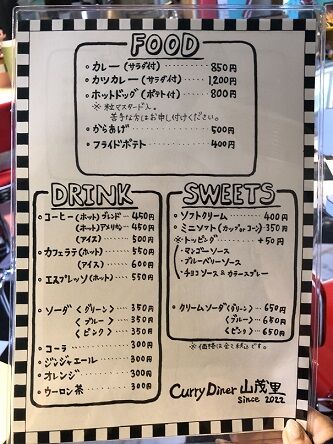 FOOD
・カレー(サラダ付)……850円
・カツカレー(サラダ付)……1200円
・ホットドッグ(ポテト付)……800円
※粒マスタード入。
苦手な方はお申し付けください。
・からあげ……500円
・フライドポテト……400円
DRINK
・コーヒー(ホット)ブレンド 450円
(ホット)アメリカン 450円
(アイス)……500円
・カフェラテ(ホット)……550円
(アイス)……600円
・エスプレッソ(ホット)……550円
・ソーダ〈グリーン〉……350円
〈ブルー〉……350円
〈ピンク〉……350円
・コーラ……300円
・ジンジャエール……300円
・オレンジ……300円
・ウーロン茶……300円
SWEETS
・ソフトクリーム……400円
・ミニソフト(カップorコーン)350円
・※トッピング……+50円
マンゴーソース
ブルーベリーソース
チョコソース&カラースプレー
・クリームソーダ〈グリーン〉…650円
〈ブルー〉…650円
〈ピンク〉…650円
※価格は全て税込です。
Curry Diner 山茂里
since 2022